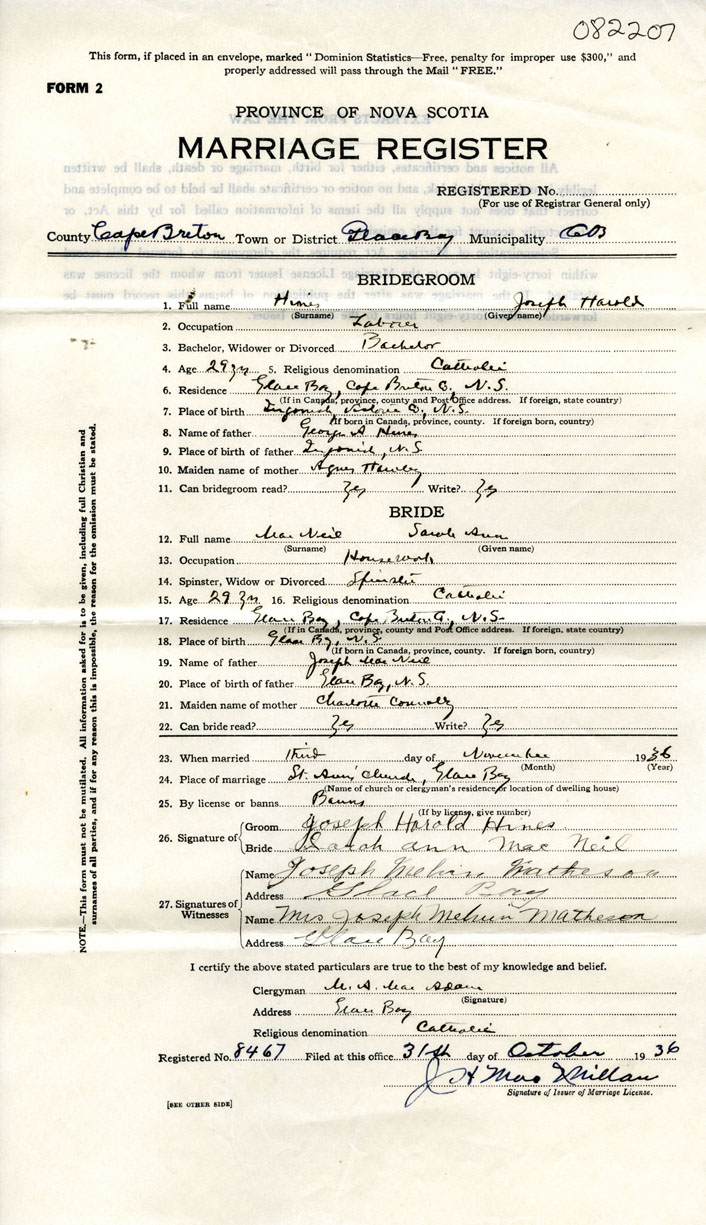 082207
This form, if placed in an envelope, marked "Dominion Statistics—Free, penalty for improper use $300," and
properly addressed will pass through the Mail "FREE."
FORM 2
PROVINCE OF NOVA SCOTIA
MARRIAGE REGISTER
REGISTERED No.
(For use of Registrar General only)
County Cape Breton Town or District Glace Bay Municipality CB
BRIDEGROOM
1. Full name Hines Joseph Harold
(Surname) (Given name)
2. Occupation Labourer
3. Bachelor, Widower or Divorced Bachelor
4. Age 29 yrs 5. Religious denomination Catholic
6. Residence Glace Bay, Cape Breton Co., N.S.
(If in Canada, province, county and Post Office address. If foreign, state country)
7. Place of birth Ingonish, Victoria Co., N.S.
(If born in Canada, province, county. If foreign born, country)
8. Name of father George A Hines
9. Place of birth of father Ingonish, N.S.
10. Maiden name of mother Agnes Hawley
11. Can bridegroom read? Yes Write? Yes
BRIDE
12. Full name Mac Neil Sarah Ann
(Surname) (Given name)
13. Occupation Housework
14. Spinster, Widow or Divorced Spinster
15. Age 29 yrs 16. Religious denomination Catholic
17. Residence Glace Bay, Cape Breton Co., N.S.
(If in Canada, province, county and Post Office address. If foreign, state country)
18. Place of birth Glace Bay, N.S.
(If born in Canada, province, county. If foreign born, country)
19. Name of father Joseph Mac Neil
20. Place of birth of father Glace Bay, N.S.
21. Maiden name of mother Charlotte Connolly
22. Can bride read? Yes Write? Yes
23. When married third day of November 1936
(Month) (Year)
24. Place of marriage St. Ann's Church, Glace Bay
(Name of church or clergyman's residence, or location of dwelling house)
25. By license or banns Banns
(If by license, give number)
26. Signature of Groom Joseph Harold Hines
Bride Sarah ann Mac Neil
27. Signatures of Witnesses
Name Joseph Melvin Matheson
Address Glace Bay
Name Mrs Joseph Melvin Matheson
Address Glace Bay
I certify the above stated particulars are true to the best of my knowledge and belief.
Clergyman M. A. Mac Adam
(Signature)
Address Glace Bay
Religious denomination Catholic
Registered No. 8467 Filed at this office 31st day of October 1936
J H MacMillan
Signature of Issuer of Marriage License.
[SEE OTHER SIDE]
NOTE.—This form must not be mutilated. All information asked for is to be given, including full Christian and
surnames of all parties, and if for any reason this is impossible, the reason for the omission must be stated.